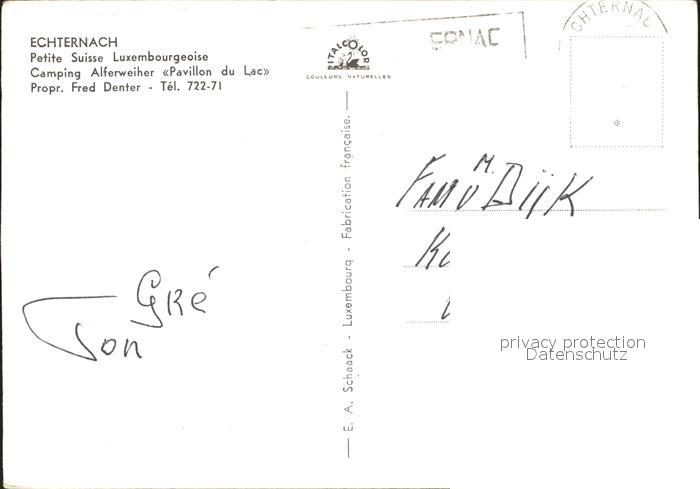 ECHTERNACH
Petite Suisse Luxembourgeoise
Camping Alferweiher «Pavillon du Lac»
Propr. Fred Denter - Tél. 722-71
ITALCOLOR
COULEURS NATURELLES
ERNAC
CHTERNAC
E. A. Schaack - Luxembourg - Fabrication française.
M. Dijk
Gré
Ton
privacy protection
Datenschutz